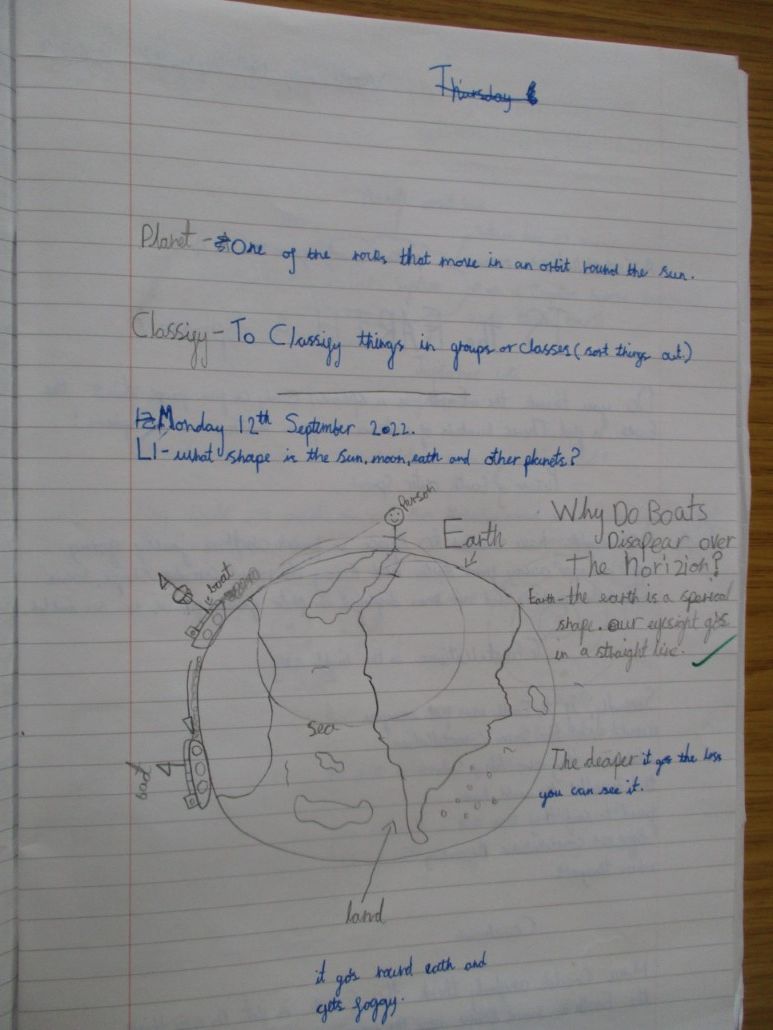 Thursday
Planet - One of the rocks that move in an orbit round the sun.
Classify - To Classify things in groups or classes (sort things out.)
Monday 12th September 2022.
LI - what shape is the sun, moon, eath and other planets?
Person
Earth
boat
Why Do Boats
Disapear over
The horizion?
Earth - the earth is a sperical
shape. our eyesight gos
in a straight line.
sea
boat
The deaper it gos the less
you can see it.
land
it gos round eath and
gets foggy.